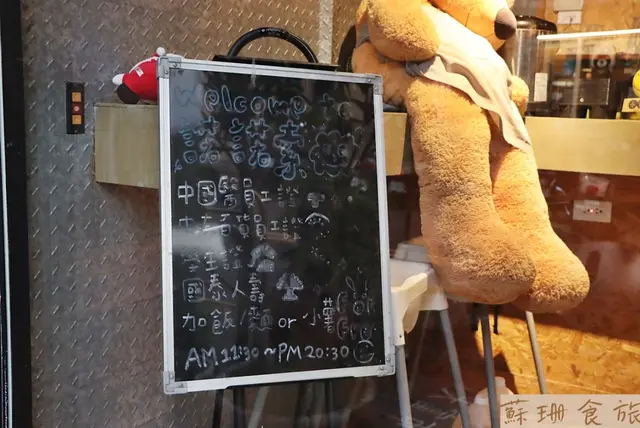 Welcome to
諾諾索
中國醫員工證
員工證
學生證
國泰人壽
加飯/麵 or 小薯
For Free!
AM 11:30~PM 20:30
蘇珊食旅